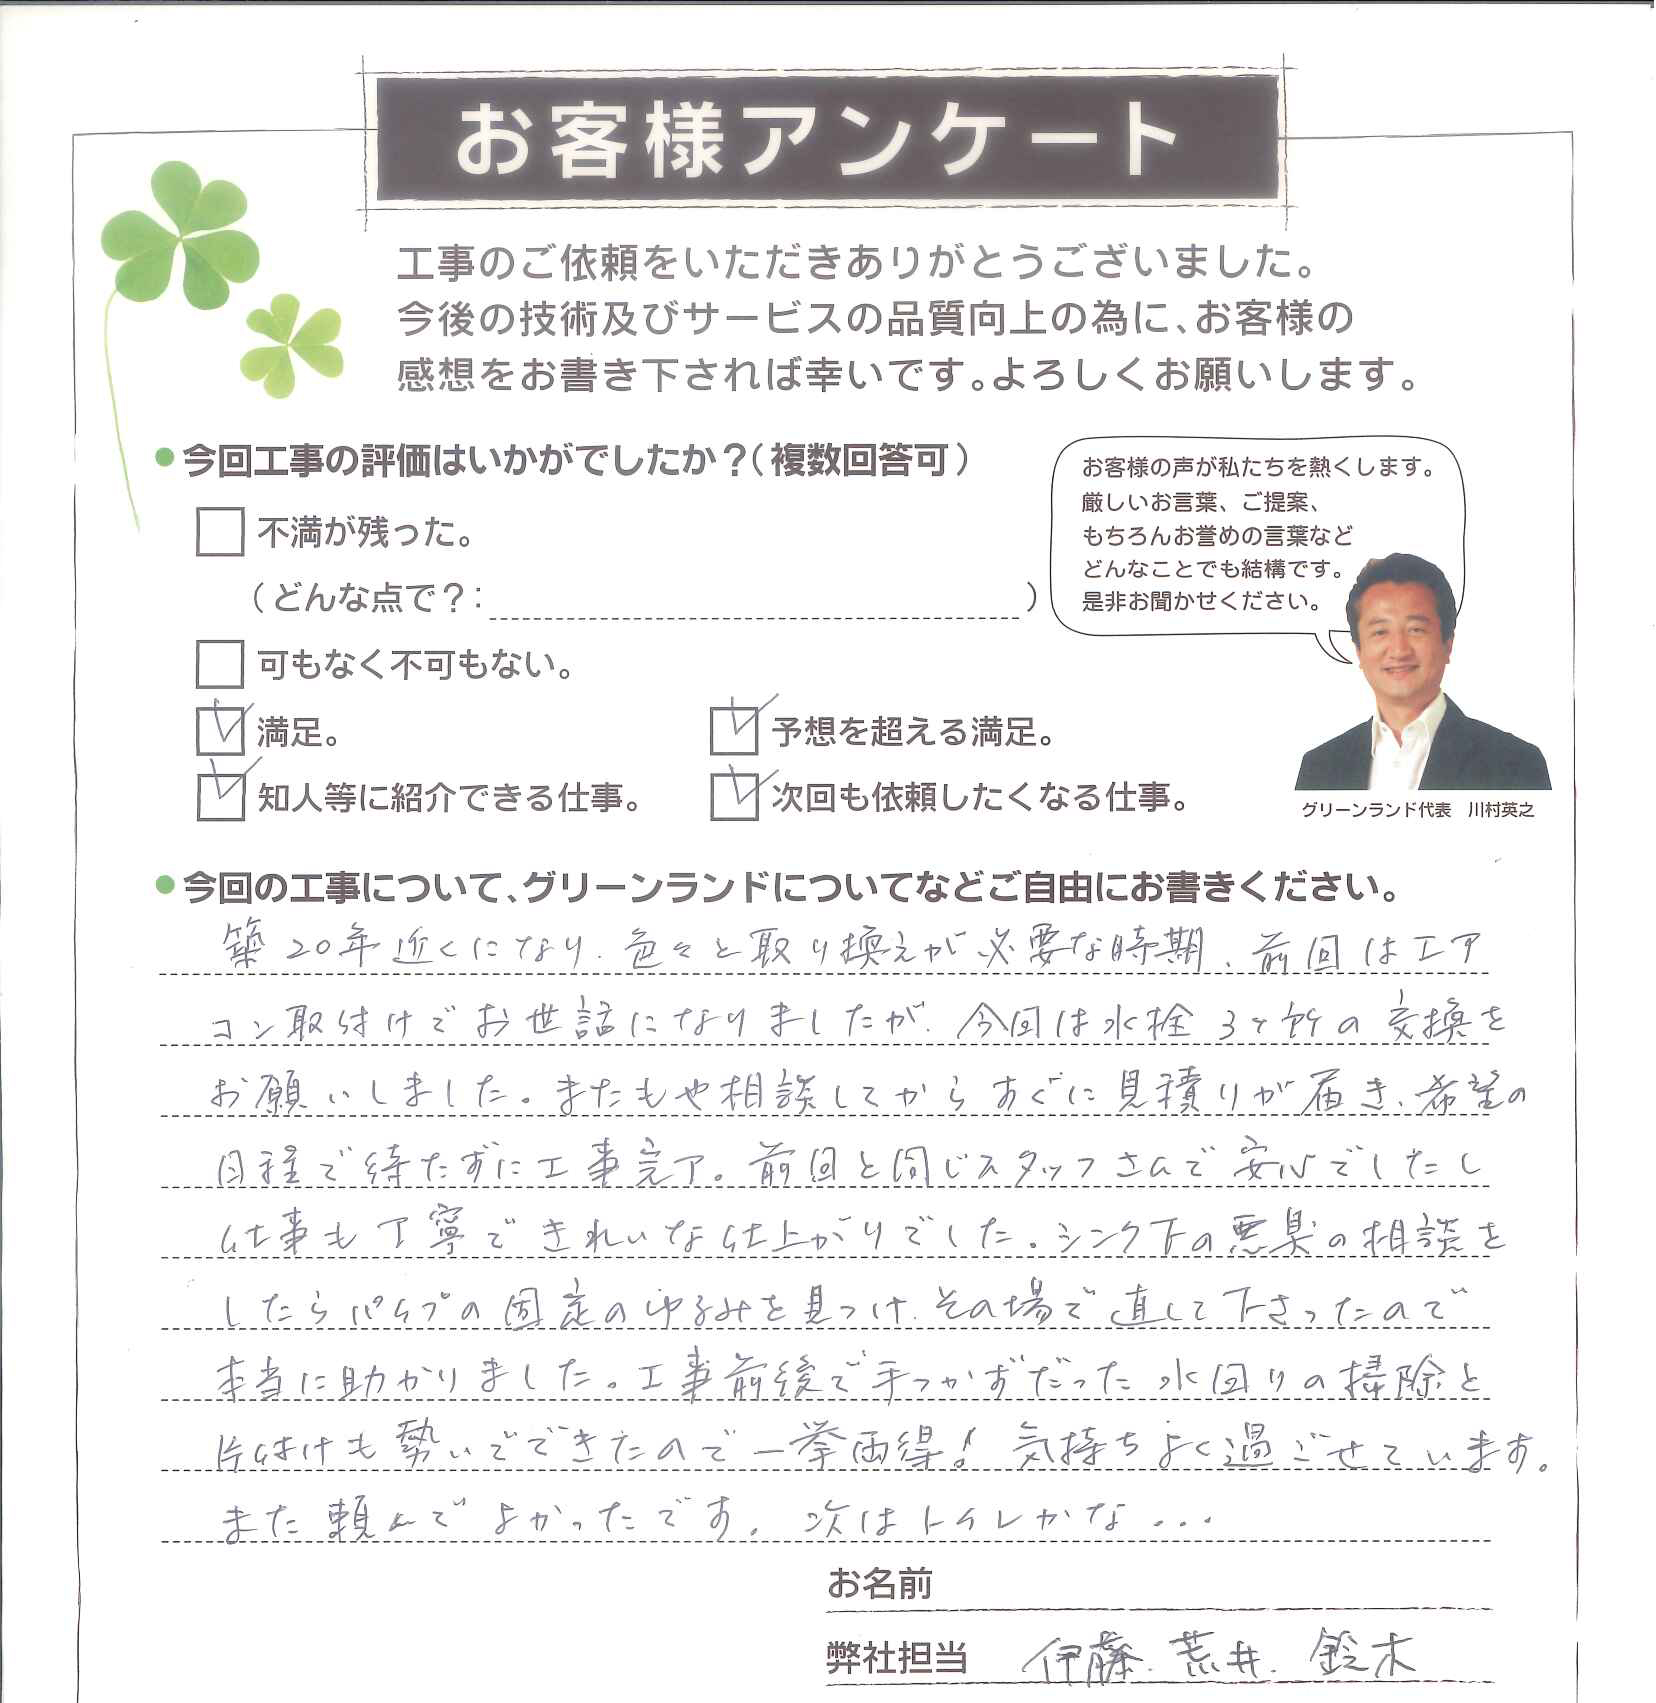 お客様アンケート
工事のご依頼をいただきありがとうございました。
今後の技術及びサービスの品質向上の為に、お客様の
感想をお書き下されば幸いです。よろしくお願いします。
●今回工事の評価はいかがでしたか？（複数回答可）
不満が残った。
（どんな点で？：　）
可もなく不可もない。
満足。
予想を超える満足。
知人等に紹介できる仕事。
次回も依頼したくなる仕事。
お客様の声が私たちを熱くします。
厳しいお言葉、ご提案、
もちろんお誉めの言葉など
どんなことでも結構です。
是非お聞かせください。
グリーンランド代表　川村英之
●今回の工事について、グリーンランドについてなどご自由にお書きください。
築20年近くになり、色々と取り換えが必要な時期、前回はエア
コン取付けでお世話になりましたが、今回は水栓3ヶ所の交換を
お願いしました。またもや相談してからすぐに見積りが届き、希望の
日程で待たずに工事完了。前回と同じスタッフさんで安心でしたし
仕事も丁寧できれいな仕上がりでした。シンク下の悪臭の相談を
したらパイプの固定のゆるみを見つけ、その場で直して下さったので
本当に助かりました。工事前後で手つかずだった水回りの掃除と
片付けも勢いでできたので一挙両得！気持ちよく過ごせています。
また頼んでよかったです。次はトイレかな...
お名前
弊社担当　伊藤、荒井、鈴木